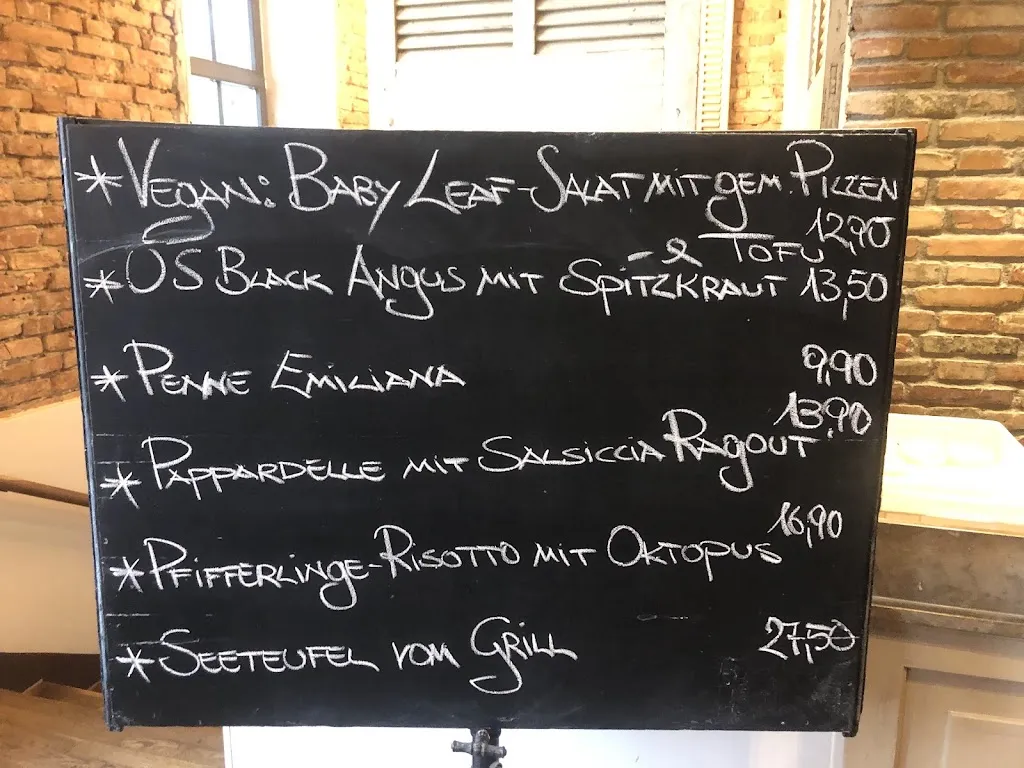 * VEGAN: BABY LEAF-SALAT MIT GEM. PILZEN
& TOFU 12,90
* OS BLACK ANGUS MIT SPITZKRAUT 13,50
* PENNE EMILIANA 9,90
* PAPPARDELLE MIT SALSICCIA RAGOUT 13,90
* PFIFFERLINGE-RISOTTO MIT OKTOPUS 16,90
* SEETEUFEL VOM GRILL 27,50